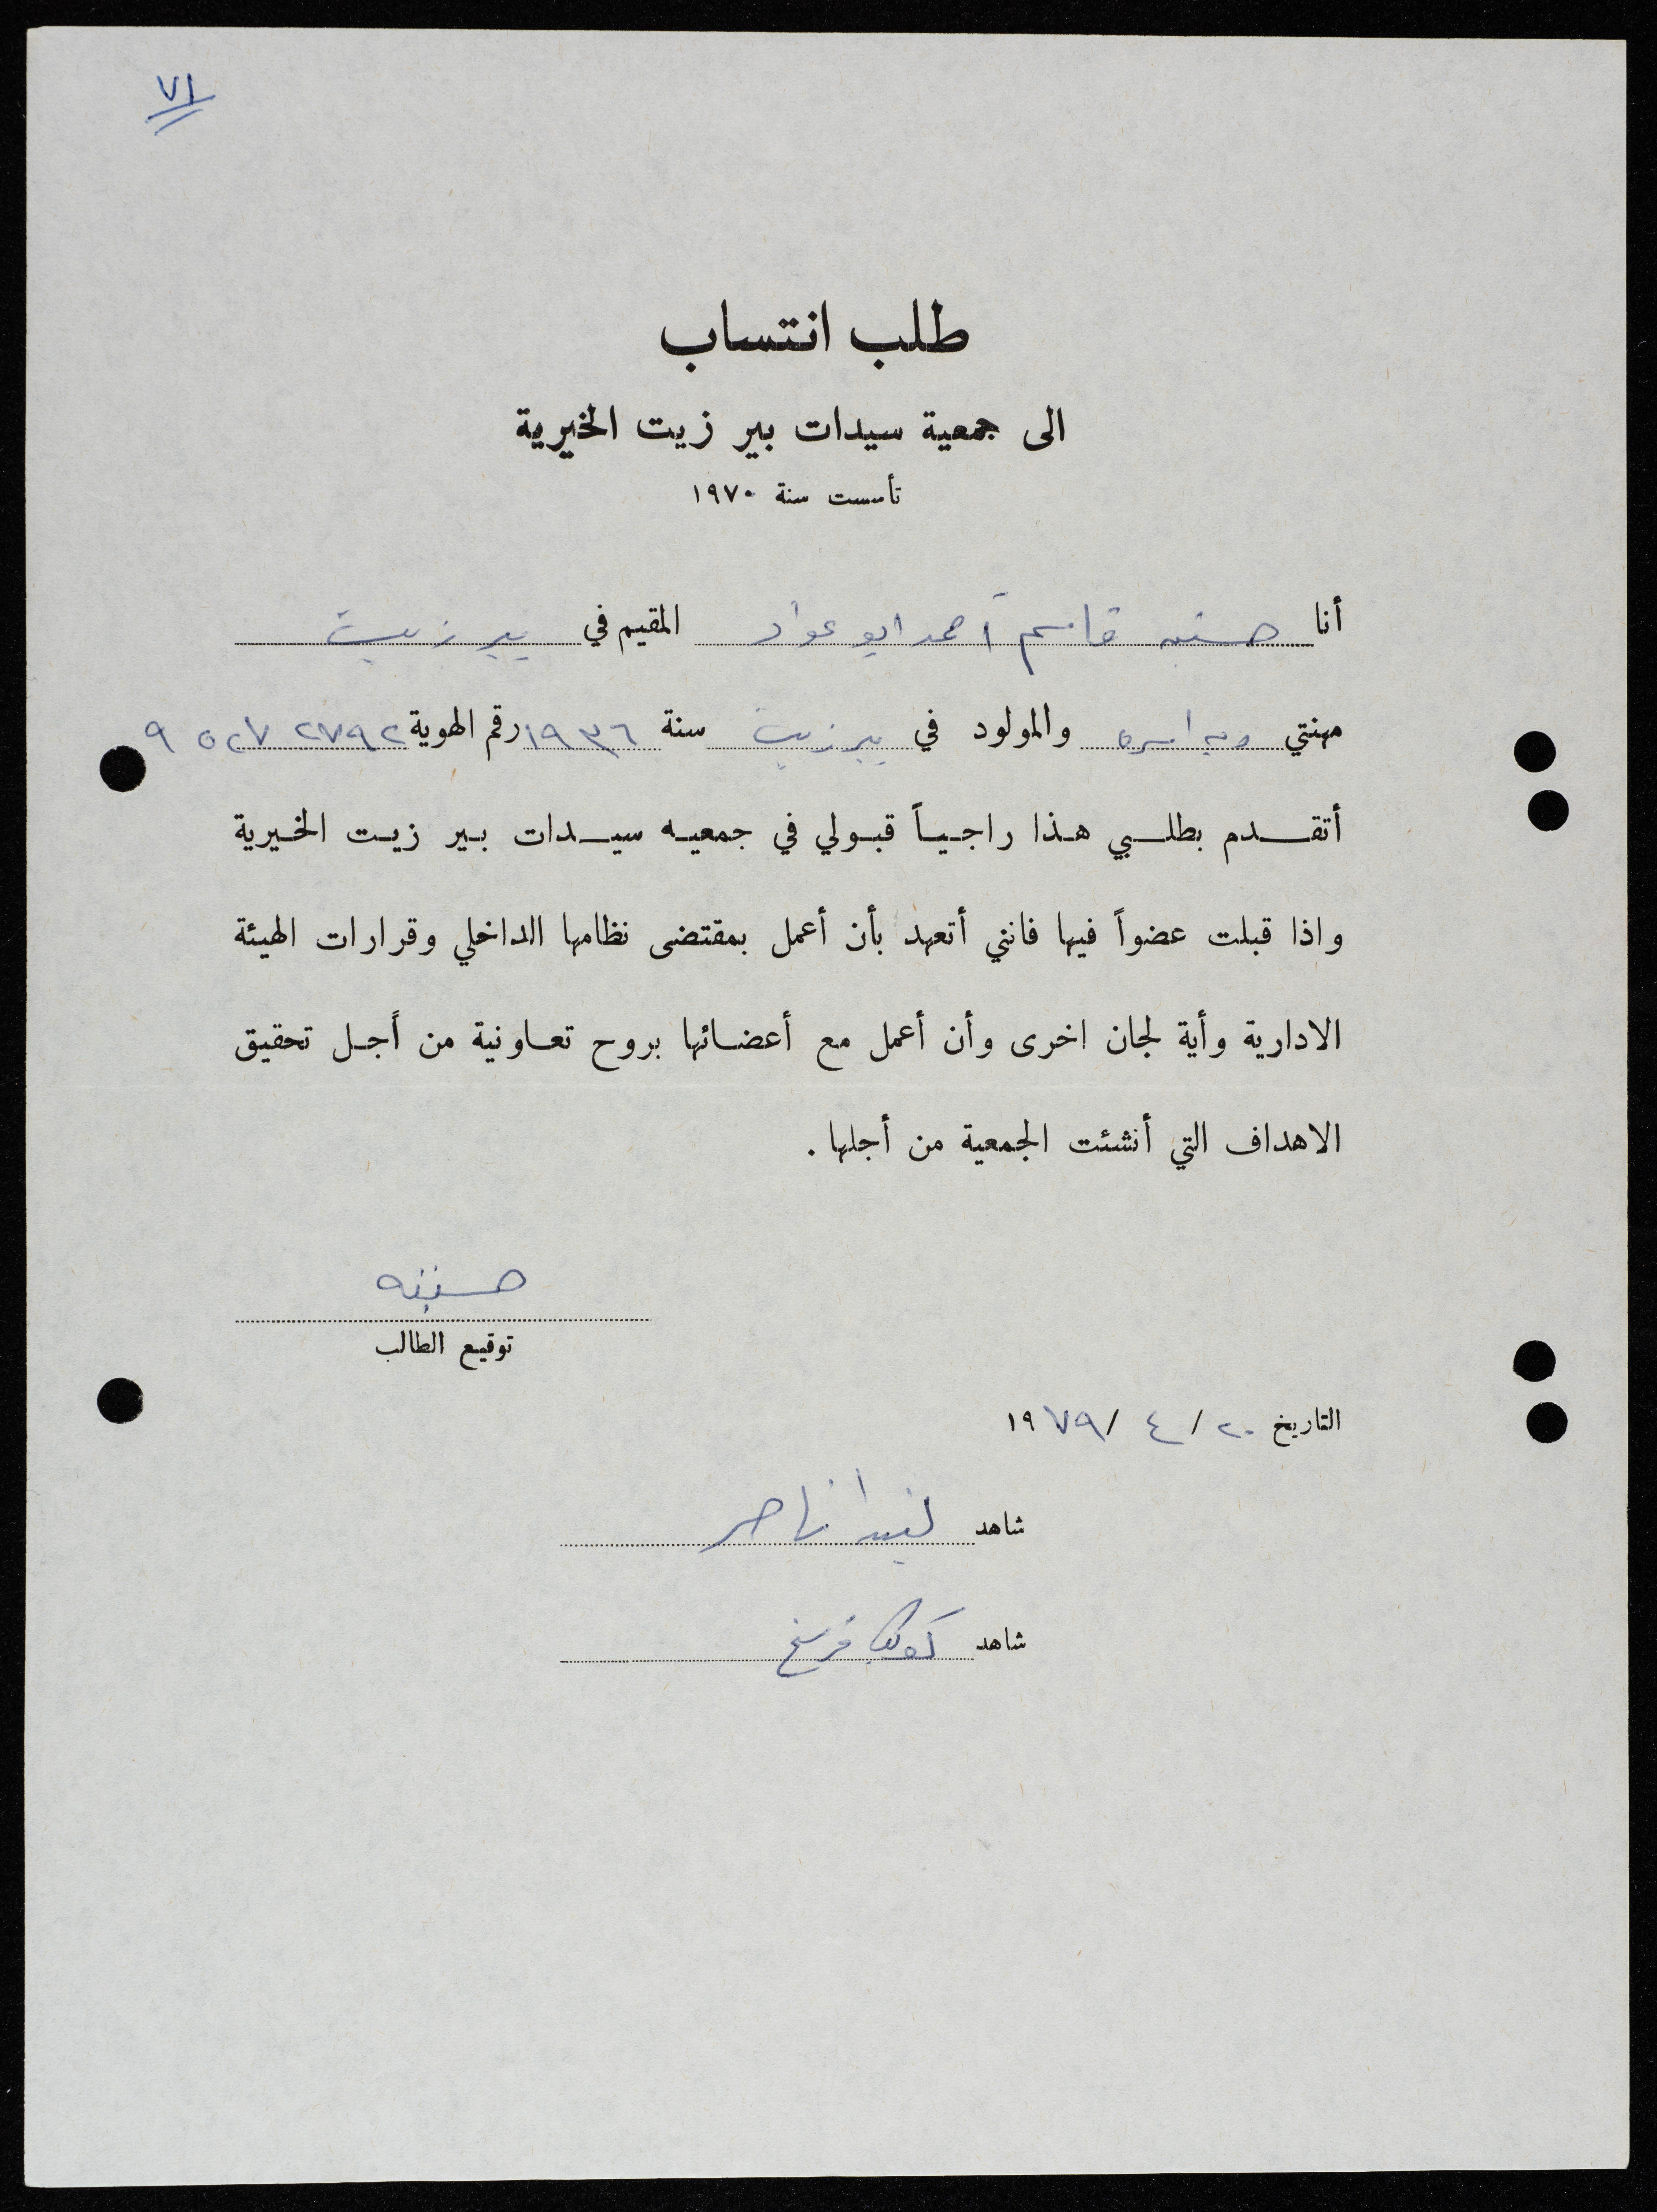 ٧١
طلب انتساب
الى جمعية سيدات بير زيت الخيرية
تأسست سنة ١٩٧٠
أنا حسنيه قاسم أحمد ابو عواد المقيم في بير زيت
مهنتي ربة اسره والمولود في بير زيت سنة ١٩٣٦ رقم الهوية ٩ ٥٢٧ ٢٧٩٢
أتقدم بطلبي هذا راجياً قبولي في جمعيه سيدات بير زيت الخيرية
واذا قبلت عضواً فيها فانني أتعهد بأن أعمل بمقتضى نظامها الداخلي وقرارات الهيئة
الادارية وأية لجان اخرى وأن أعمل مع أعضائها بروح تعاونية من أجل تحقيق
الاهداف التي أنشئت الجمعية من أجلها .
حسنيه
توقيع الطالب
التاريخ ٢٠ / ٤ / ١٩٧٩
شاهد ناصر
شاهد كوكب فرسخ